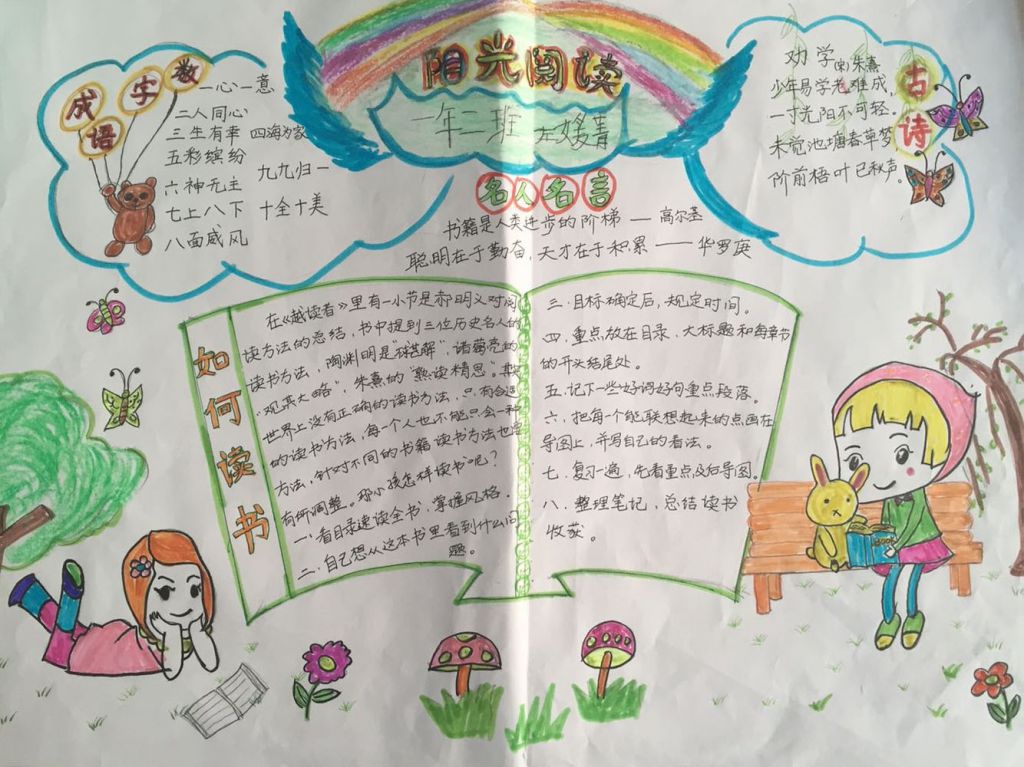 阳光阅读
一年二班 左媛青
数字成语
一心一意
二人同心
三生有幸 四海为家
五彩缤纷
六神无主 九九归一
七上八下 十全十美
八面威风
古诗
劝学(宋)朱熹
少年易学老难成,
一寸光阳不可轻。
未觉池塘春草梦
阶前梧叶已秋声。
名人名言
书籍是人类进步的阶梯 — 高尔基
聪明在于勤奋,天才在于积累 —— 华罗庚
如何读书
在《越读者》里有一小节是郝明义对阅
读方法的总结,书中提到三位历史名人的
读书方法,陶渊明是"不甚解",诸葛亮的
"观其大略",朱熹的"熟读精思"。其实
世界上没有正确的读书方法,只有合适
的读书方法,每一个人也不能只会一种
方法,针对不同的书籍读书方法也应
有所调整。那小孩怎样读书呢?
一.看目录速读全书,掌握风格。
二.自己想从这本书里看到什么问
题。
三.目标确定后,规定时间。
四.重点放在目录、大标题和每章节
的开头结尾处。
五.记下一些好词好句重点段落。
六.把每个能联想起来的点画在
导图上,并写自己的看法。
七.复习一遍,先看重点及后导图。
八.整理笔记,总结读书
收获。
Book